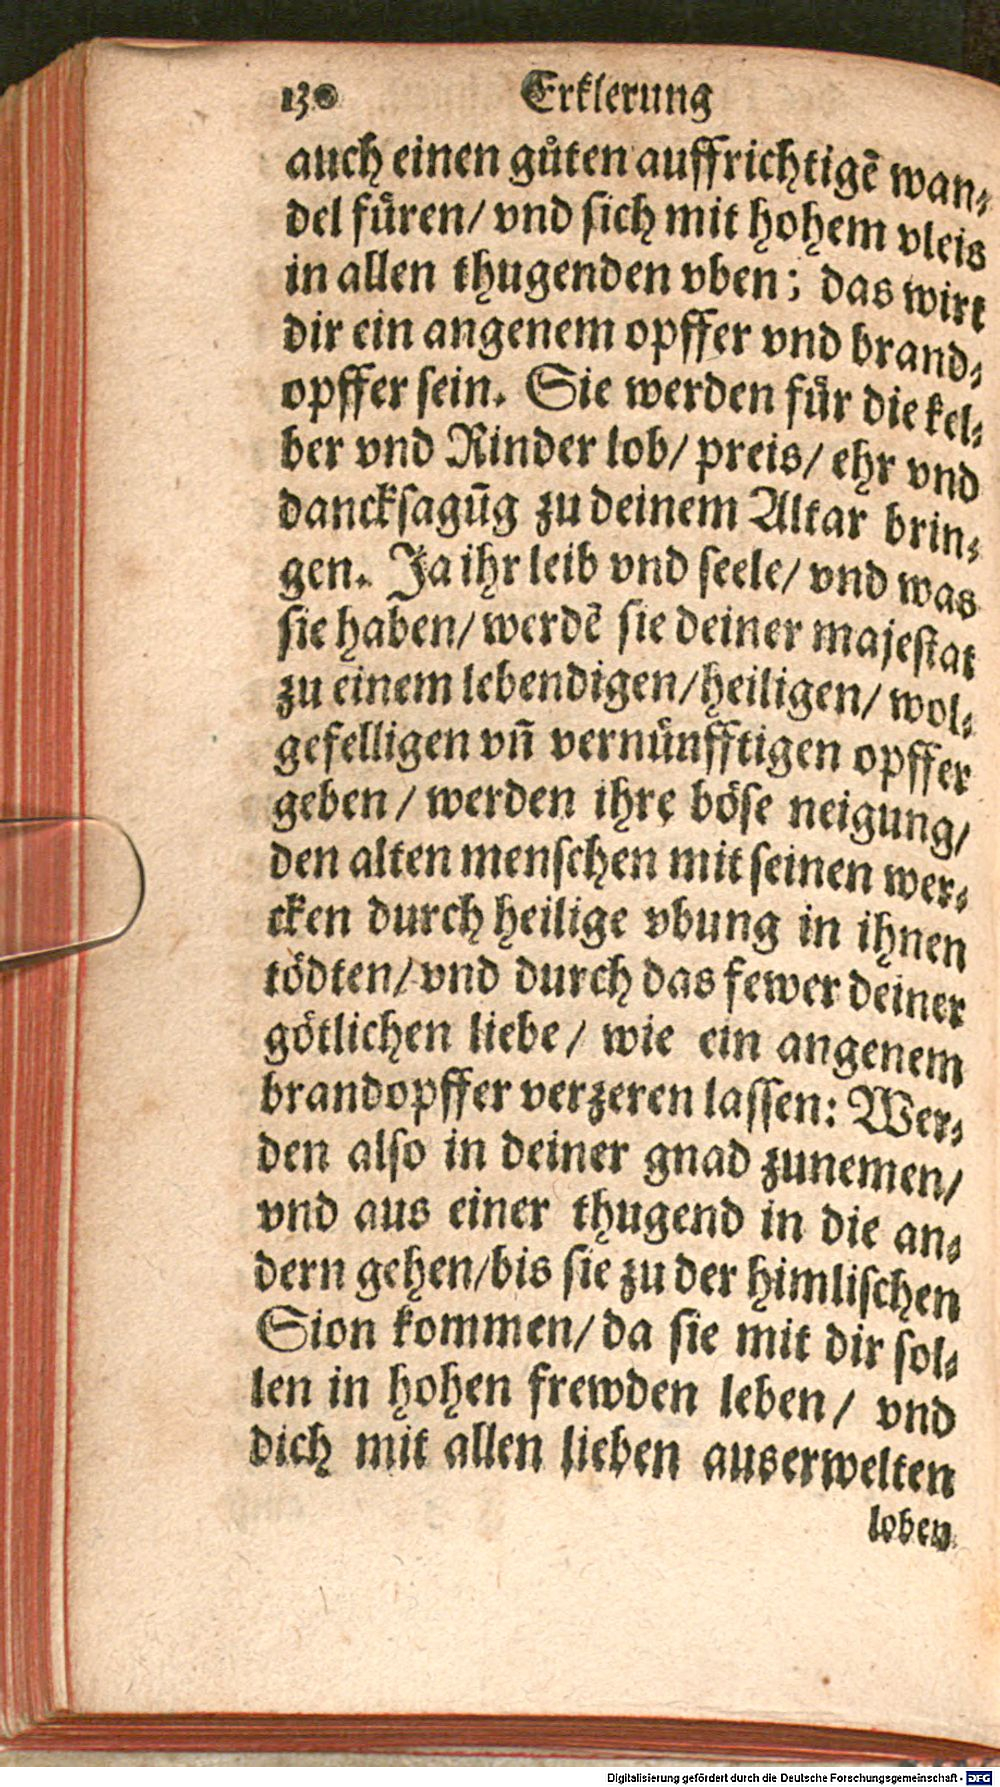 130 Erklerung
auch einen gůten auffrichtigē wan-
del fűren/ vnd sich mit hohem vleis
in allen thugenden vben; das wirt
dir ein angenem opffer vnd brand-
opffer sein. Sie werden fűr die kel-
ber vnd Rinder lob/ preis/ ehr vnd
dancksagūg zu deinem Altar brin-
gen. Ja ihr leib vnd seele/ vnd was
sie haben/ werdē sie deiner majestat
zu einem lebendigen/ heiligen/ wol-
gefelligen vn̄ vernűnfftigen opffer
geben/ werden ihre böse neigung/
den alten menschen mit seinen wer-
cken durch heilige vbung in ihnen
tödten/ vnd durch das fewer deiner
götlichen liebe/ wie ein angenem
brandopffer verzeren lassen: Wer-
den also in deiner gnad zunemen/
vnd aus einer thugend in die an-
dern gehen/ bis sie zu der himlischen
Sion kommen/ da sie mit dir sol-
len in hohen frewden leben/ vnd
dich mit allen lieben auserwelten
loben
Digitalisierung gefördert durch die Deutsche Forschungsgemeinschaft - DFG